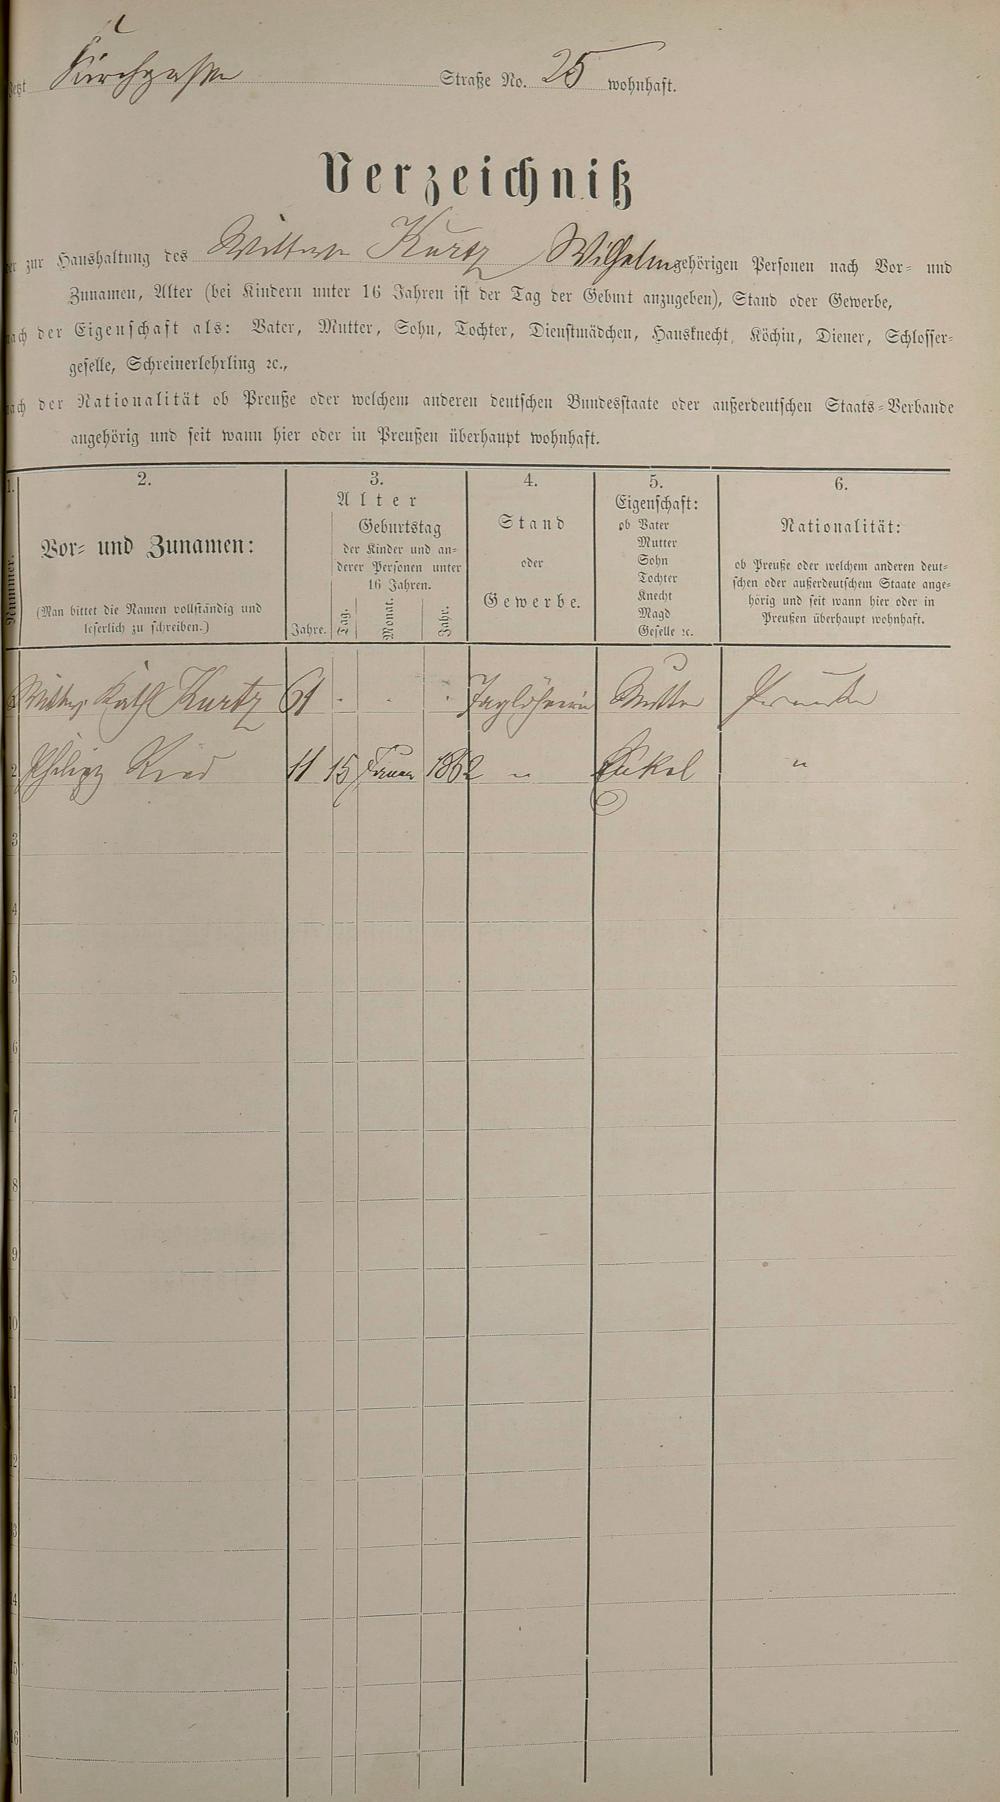 Jetzt Kirchgasse Straße No. 25 wohnhaft.
Verzeichniß
der zur Haushaltung des Wittwe Kurtz Wilhelm gehörigen Personen nach Vor- und
Zunamen, Alter (bei Kindern unter 16 Jahren ist der Tag der Geburt anzugeben), Stand oder Gewerbe,
nach der Eigenschaft als: Vater, Mutter, Sohn, Tochter, Dienstmädchen, Hausknecht, Köchin, Diener, Schlosser-
geselle, Schreinerlehrling ꝛc.,
nach der Nationalität ob Preuße oder welchem anderen deutschen Bundesstaate oder außerdeutschen Staats-Verbande
angehörig und seit wann hier oder in Preußen überhaupt wohnhaft.
1.
Nummer.
2.
Vor- und Zunamen:
(Man bittet die Namen vollständig und
leserlich zu schreiben.)
3.
Alter
Jahre.
Geburtstag
der Kinder und an-
derer Personen unter
16 Jahren.
Tag.
Monat.
Jahr.
4.
Stand
oder
Gewerbe.
5.
Eigenschaft:
ob Vater
Mutter
Sohn
Tochter
Knecht
Magd
Geselle ꝛc.
6.
Nationalität:
ob Preuße oder welchem anderen deut-
schen oder außerdeutschem Staate ange-
hörig und seit wann hier oder in
Preußen überhaupt wohnhaft.
Kath Kurtz 61 Taglöhnerin Mutter
2 Philipp 11 15 1862 " Enkel "
3
4
5
6
7
8
9
10
11
12
13
14
15
16